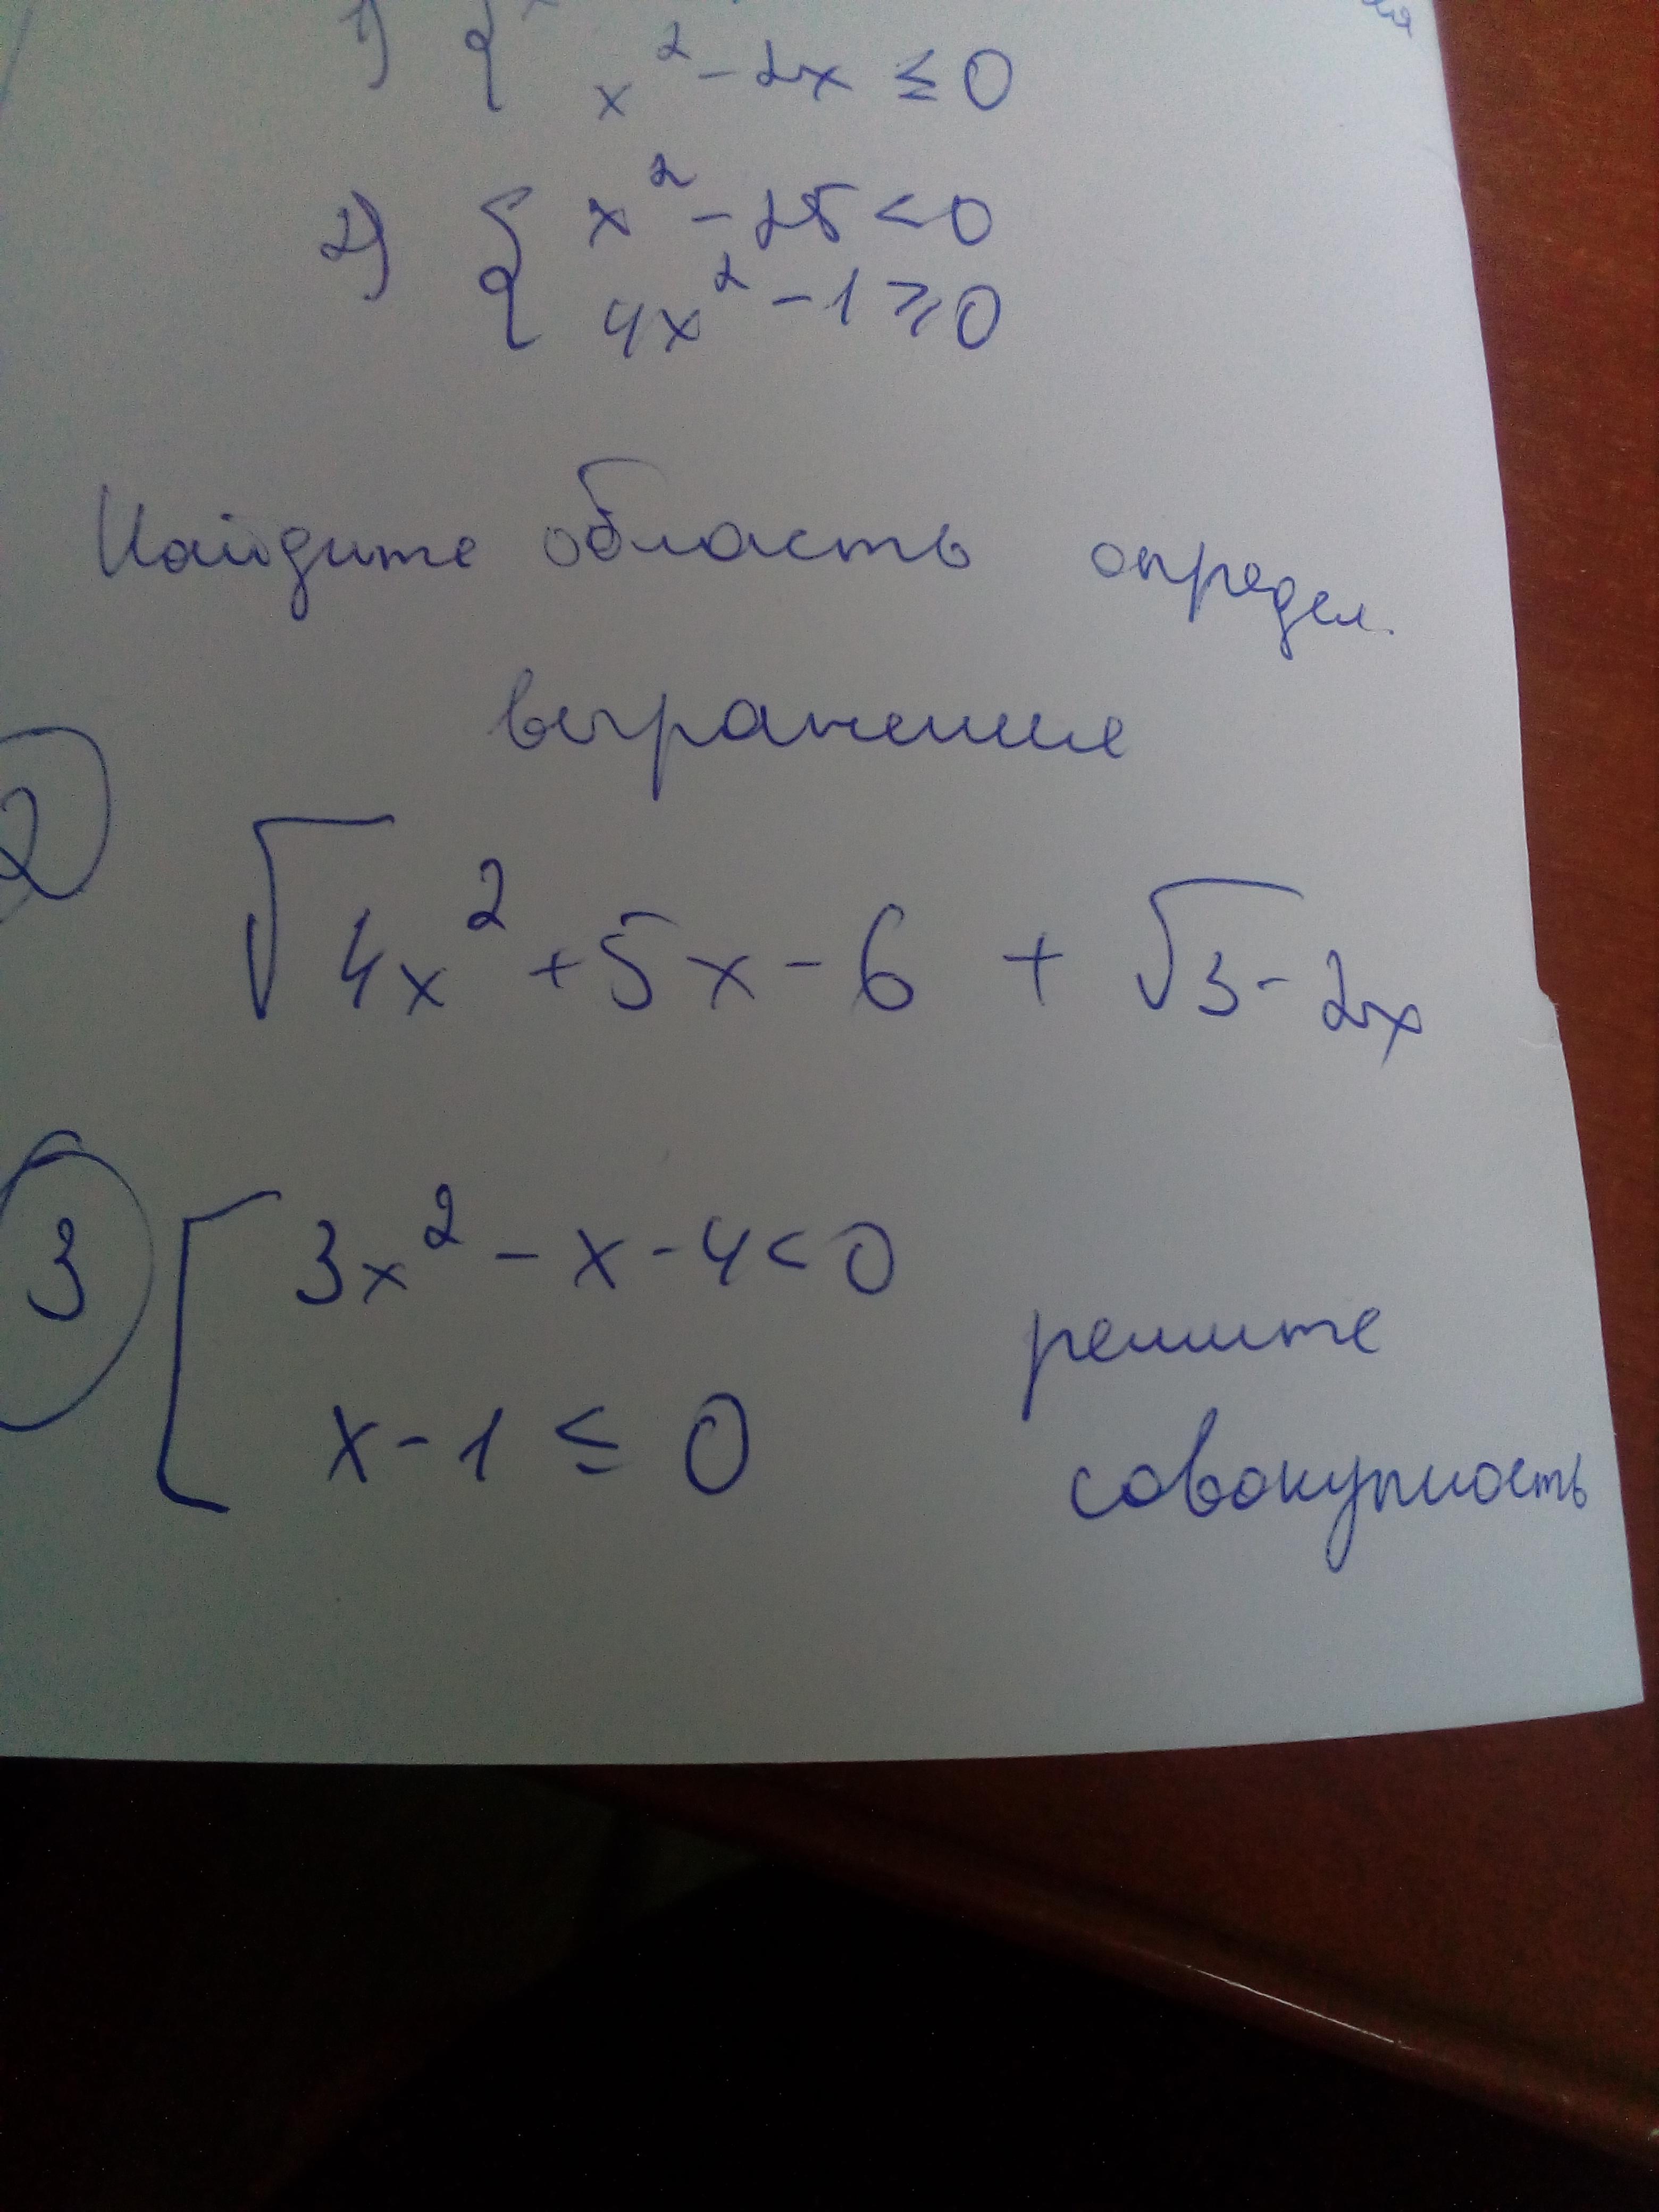 1) {
x² - 2x ≤ 0
2) { x² - 25 < 0
4x² - 1 ⩾ 0
Найдите область определ.
выражения
2
√4x² + 5x - 6 + √3 - 2x
3 [ 3x² - x - 4 < 0
решите
x - 1 ≤ 0
совокупность